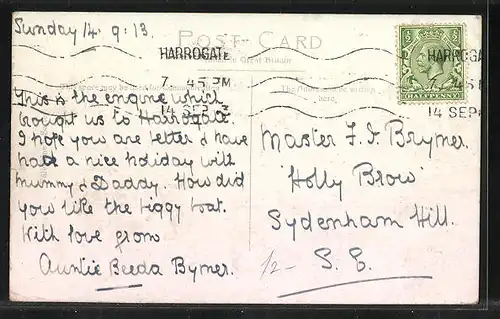 Sunday 14. 9. 13.
POST-CARD
HARROGATE
Great Britain
7. 45 PM
14 SEP
This is the engine which
brought us to Harrogate
I hope you are better & have
had a nice holiday with
Mummy & Daddy. How did
you like the biggy boat.
With love from
Auntie Beeda Bymer.
HARROGA
14 SEP
Master F. J. Brymer.
'Holly Brow'
Sydenham Hill.
S. E.
1/2-